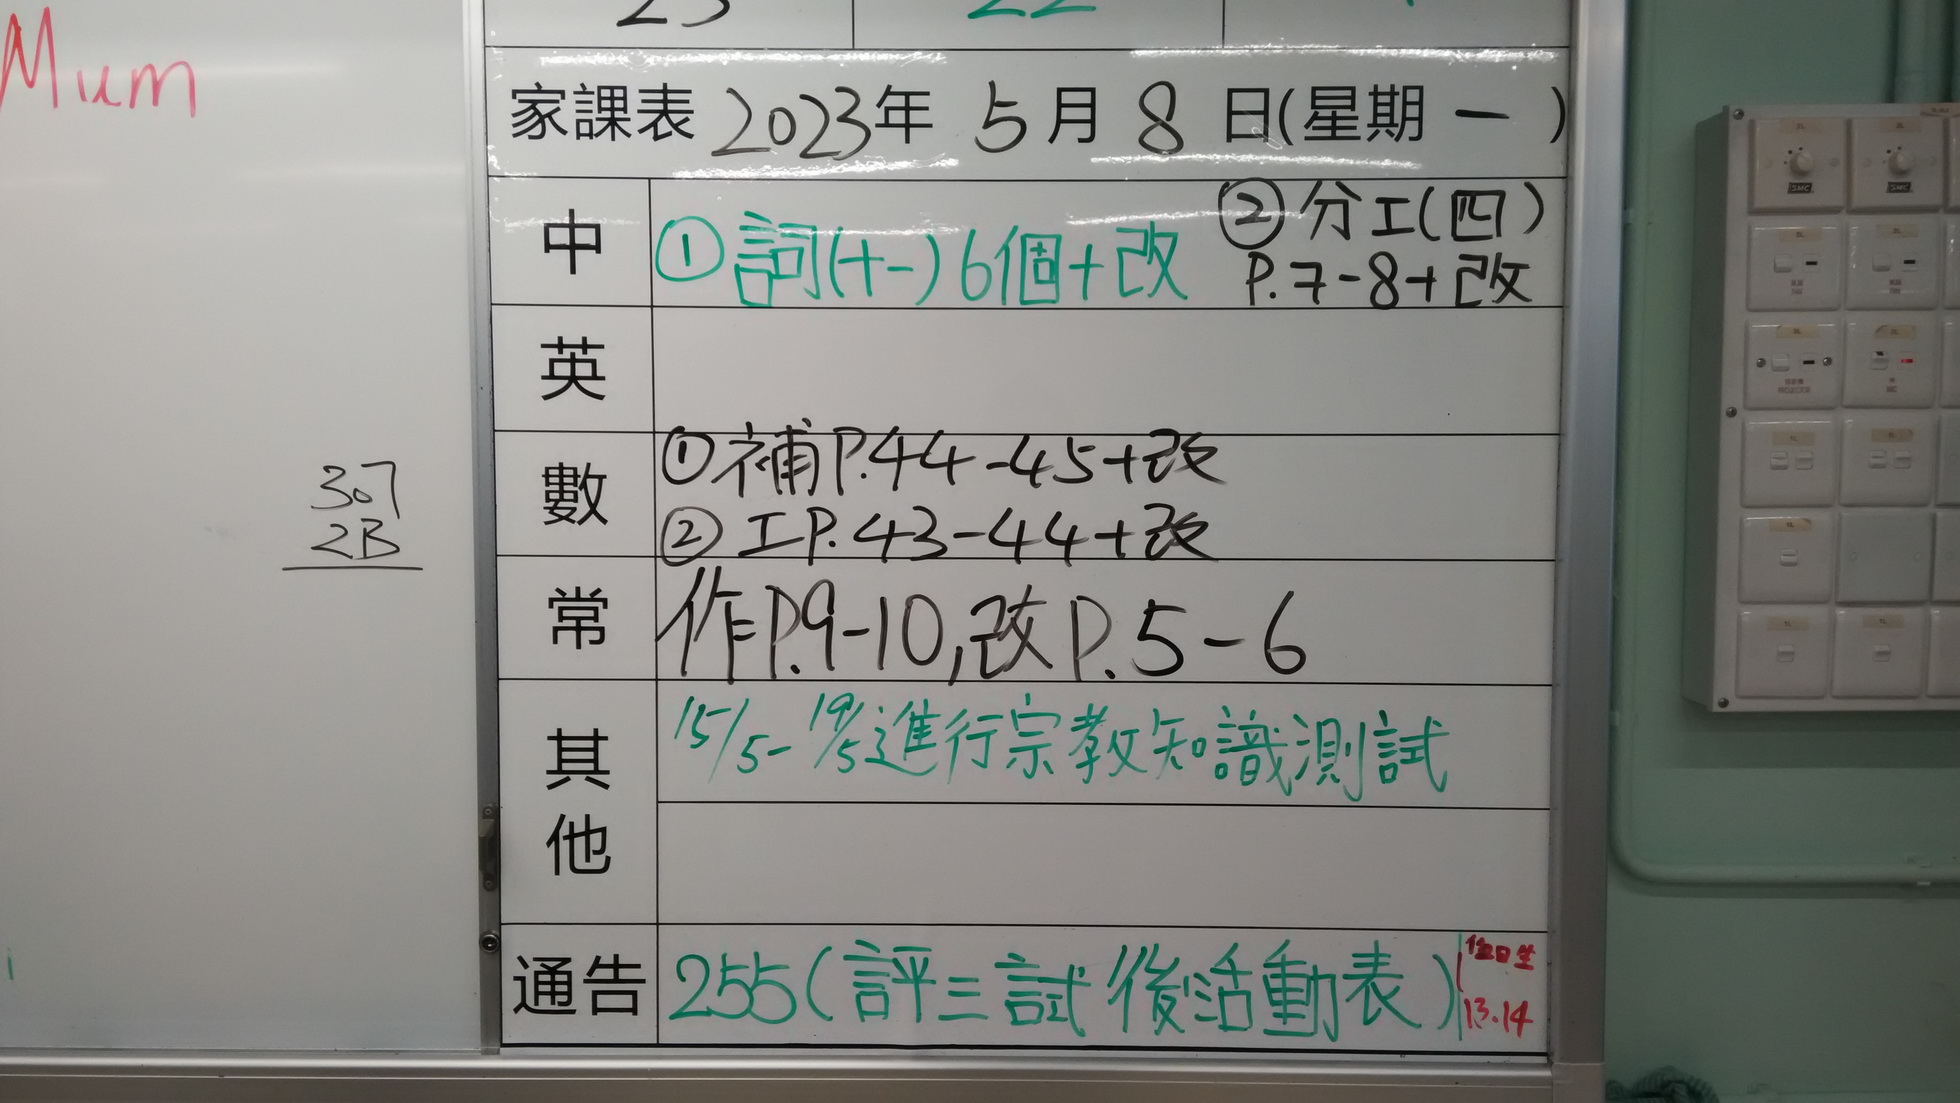 Mum
23
22
家課表 2023年 5月 8日(星期一)
中
①詞(十一)6個+改
②分工(四)
P.7-8+改
英
數
①補P.44-45+改
②工P.43-44+改
常
作P.9-10,改P.5-6
其他
15/5-19/5進行宗教知識測試
通告
255(評三試後活動表)
值日生
13.14
307
2B
SMC
SMC